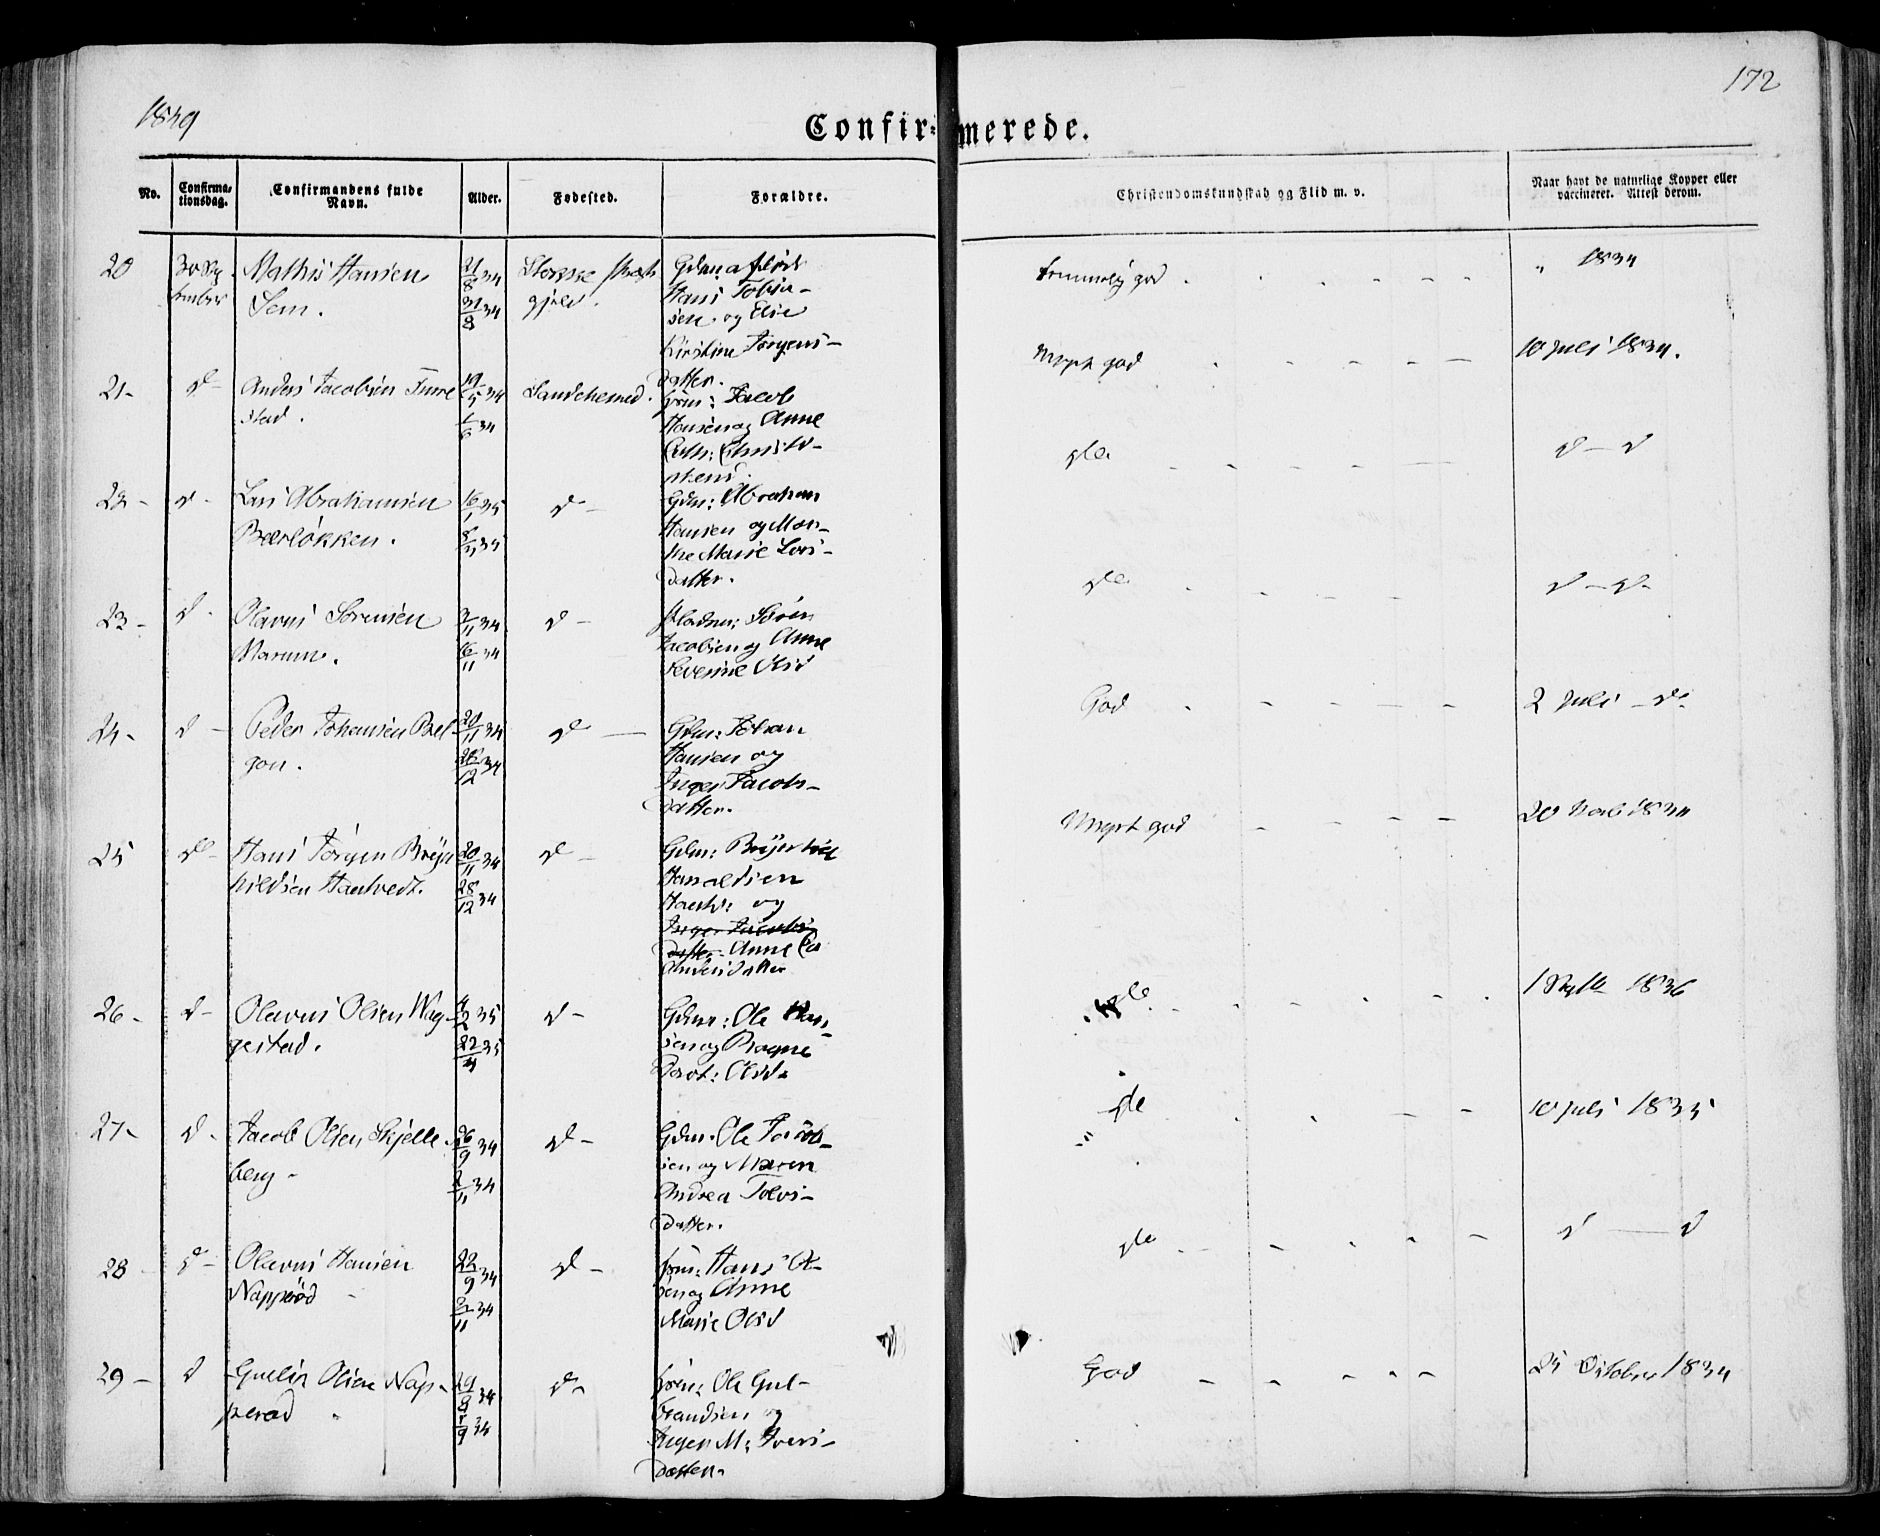 1849
172
Confirmerede.
No.
Confirma-
tionsdag.
Confirmandens fulde
Navn.
Alder.
Fødested.
Forældre.
Christendomskundskab og Flid m. v.
Naar havt de naturlige Kopper eller
vaccineret. Attest derom.
20
30 Sep
tember
Mathis Hansen
Sem.
21/8 34
31/8 34
gjeld.
Hans Tobia-
sen og Elie
Kirstine Jørgens-
datter.
god
" 1834
21-
d-
Anders Jacobsen
stad.
19/5 34
1/6 34
Sandeherred.
Jacob
Hansen og Anne
Meget god
10 Juli 1834.
22-
d-
Lars Abrahamsen
Bærløkken.
16/1 35
35
d-
Gdm: Abraham
Hansen og Mar-
the Marie Lars-
datter.
gla
d - d
23-
d-
Olavus Sørensen
Marum.
2/11 34
16/11 34
d-
Pladsm: Søren
Jacobsen og Anne
Severine Olsd
gla
d - d-
24-
d-
Peder Johansen Bel-
gon.
20/11 34
28/12 34
d-
Gdm: Johan
Hansen og
Inger Jacobs-
datter.
God
2 Juli - d-
25
d-
Hans Jørgen Bryn
hildsen Haatvedt.
20/11 34
28/12 34
d-
Gdm: Brynhild
og
Inger Jacobs
datter Anne
Andersdatter
Meget god
20 1834
26-
d-
Olavus Olsen Wag-
gestad.
4/2 35
22/4 35
d-
Gdm: Ole Han-
sen og Ragne
Dorot: Olsd-
gla
1 Septb 1836
27-
d-
Jacob Olsen Skjelle
berg-
26/9 34
2/11 34
d-
Gdm: Ole Jacob-
sen og Maren
Andrea Tolvs-
datter.
gla
10 Juli 1835
28
d-
Olavus Hansen
Napperød
22/9 34
2/11 34
d-
Hans Ol-
sen og Anne
Marie Olsd
gla
d - d
29-
d
Olsen Nap-
perød
29/8 34
9 34
d-
Ole Gul-
brandsen og
Inger M: Ivers-
datter.
God
25 October 1834